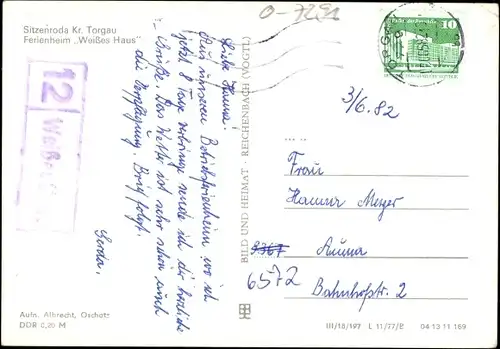 Sitzenroda Kr. Torgau
Ferienheim „Weißes Haus"
0-7291
12
Liebe Hanna!
Aus unserem Betriebsferienheim wo ich
jetzt 8 Tage verbringe sende ich dir herzliche
Grüße. Das Wetter ist sehr schön auch
die Verpflegung. Brief folgt.
Gerda.
Aufn. Albrecht, Oschatz
DDR 0,20 M
BILD UND HEIMAT · REICHENBACH (VOGTL)
10
3/6.82
Frau
Hanna Meyer
9367 Auma
6572
Bahnhofstr. 2
III/18/197 L 11/77/B 04 13 11 169